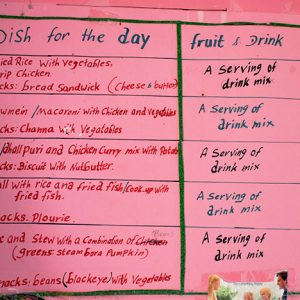 Dish for the day
fruit & Drink
ied Rice with Vegetables.
rip Chicken.
cks: bread Sandwick (Cheese & butter)
A serving of
drink mix
wmein /Macaroni with Chicken and Vegetables
cks: Channa with Vegatables
A serving of
drink mix
/dhall puri and Chicken Curry mix with Potato
cks: Biscuit with Nutbutter.
A serving of
drink mix
ll with rice and fried fish/Cook-up with
fried fish.
acks. Plourie.
A serving of
drink mix
e and Stew with a Combination of
(greens: steam bora Pumpkin)
nacks: beans (blackeye) with Vegetables
A serving of
drink mix